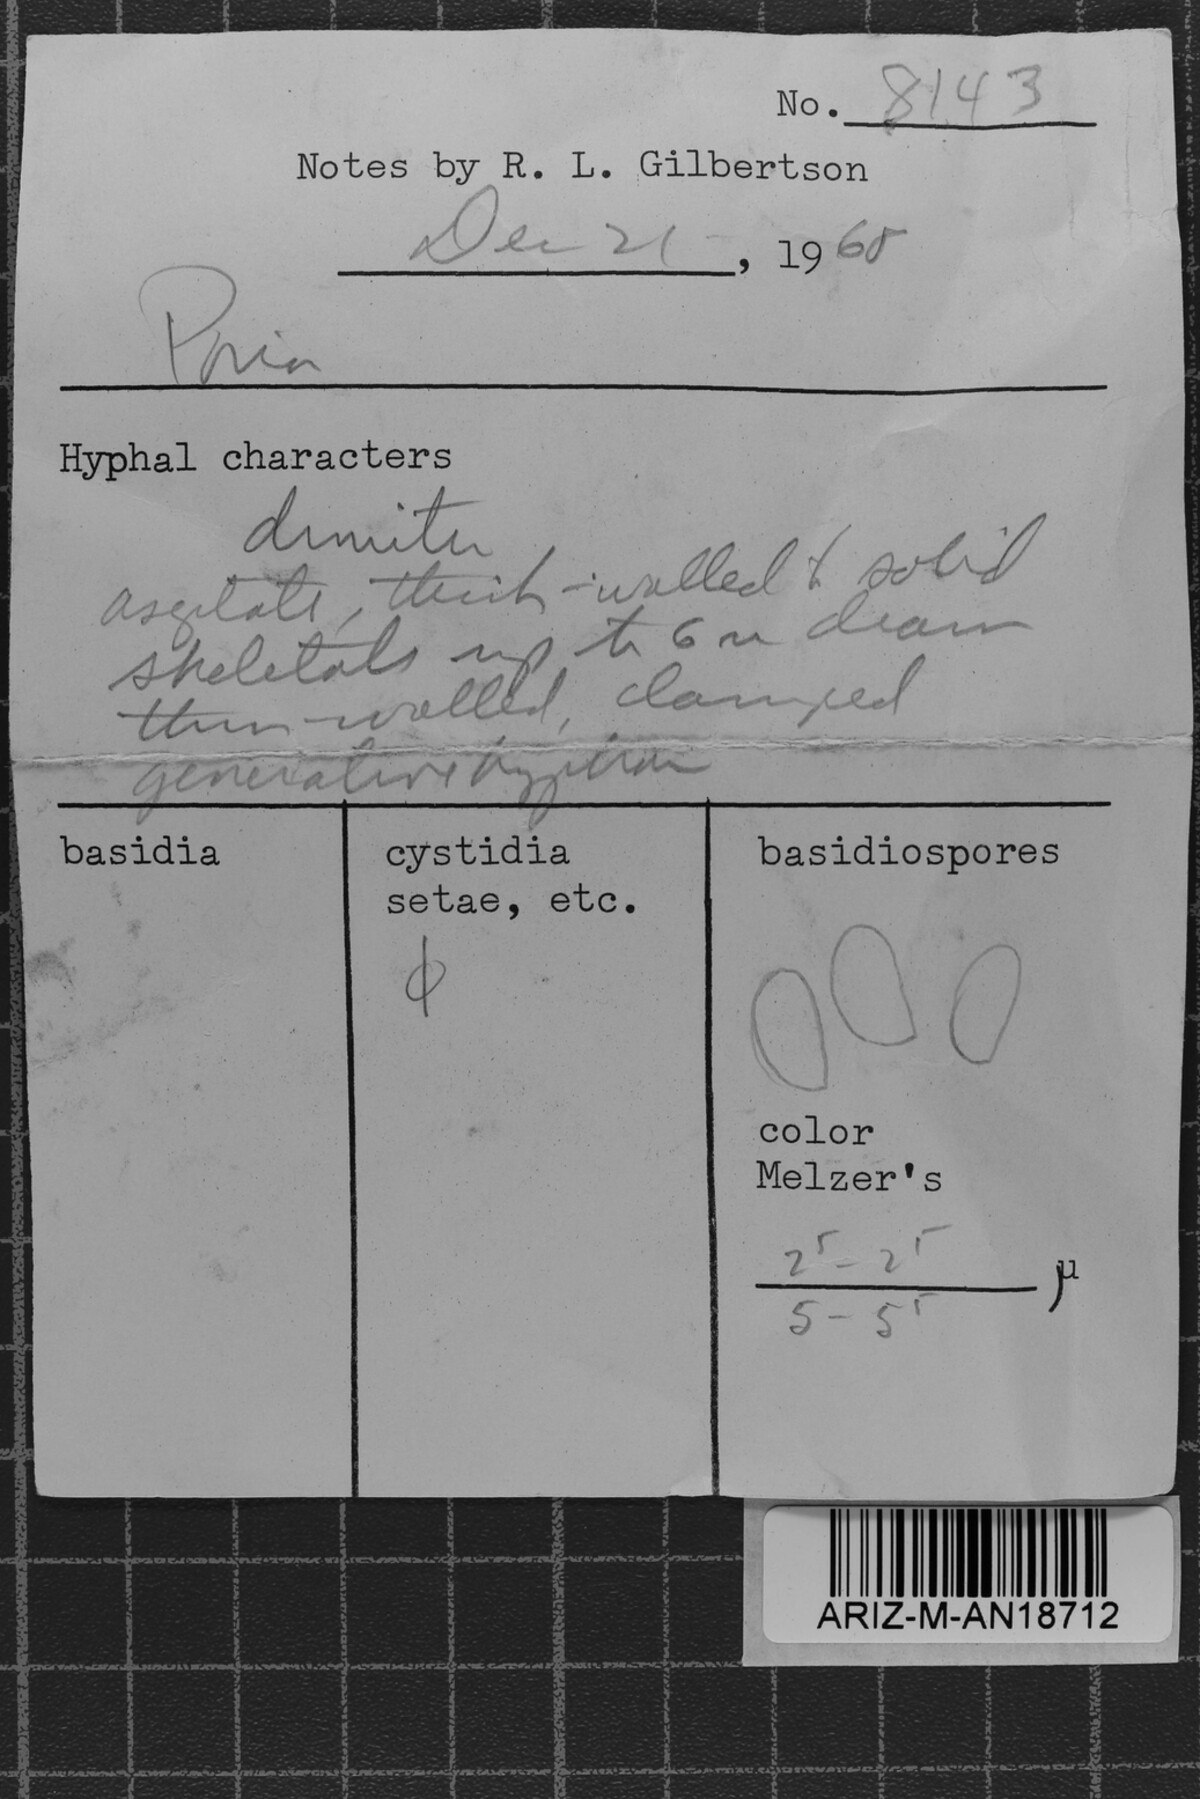 No. 8143
Notes by R. L. Gilbertson
Dec 21, 1968
Poria
Hyphal characters
dimitic
aseptate, thick-walled to solid
skeletals up to 6 µ diam
thin-walled, clamped
generative hyphae
basidia
cystidia
setae, etc.
ϕ
basidiospores
color
Melzer's
2⁵ - 2⁵ µ
5 - 5⁵
ARIZ-M-AN18712